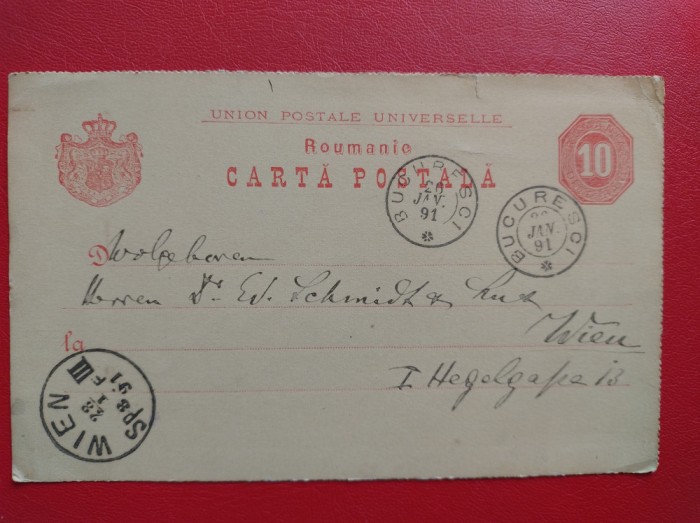 UNION POSTALE UNIVERSELLE
Roumanie
CARTĂ POSTALĂ
10
BUCURESCI
JAN.
91
BUCURESCI
JAN.
91
D
Wolgeboren
Herren Dr. Ed. Schmidt &
Wien
la
I Hegelgasse 13
WIEN
III
28
1
91